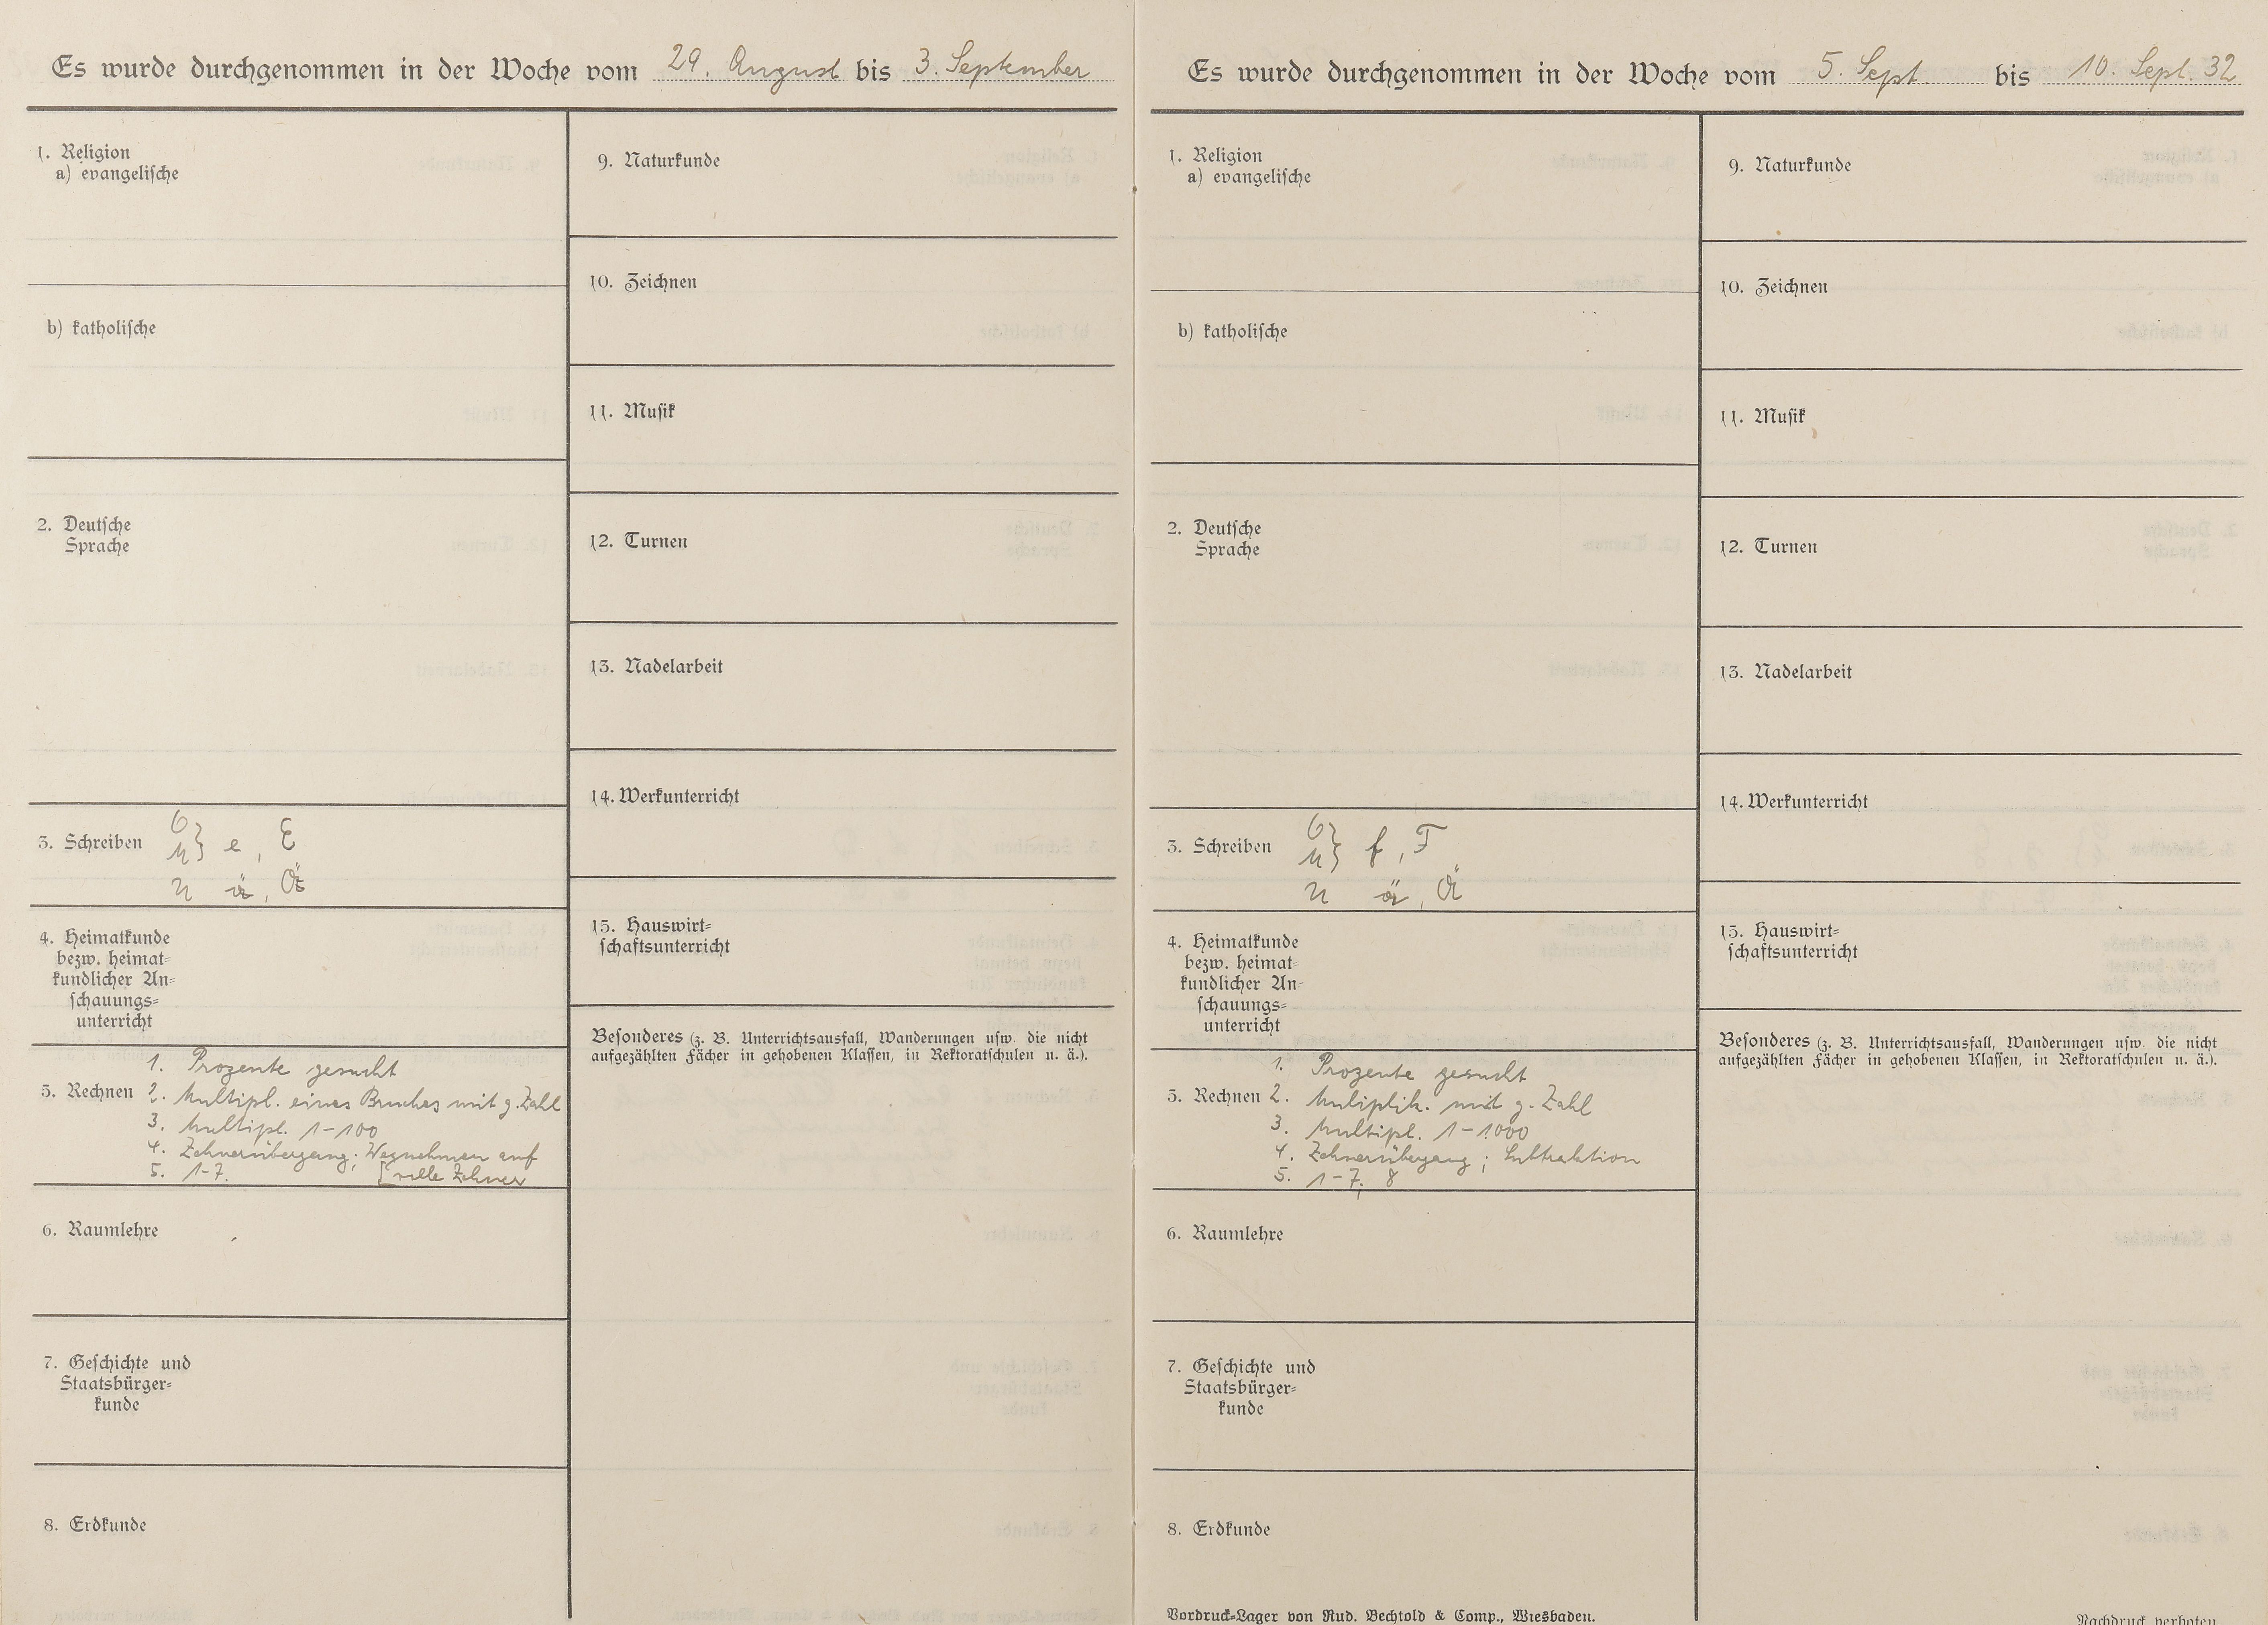 Es wurde durchgenommen in der Woche vom 29. August bis 3. September
1. Religion
a) evangelische
b) katholische
2. Deutsche
Sprache
3. Schreiben O } e, E
M }
u ä, Ä
4. Heimatkunde
bezw. heimat=
kundlicher An=
schauungs=
unterricht
1. Prozente gesucht
5. Rechnen 2. Multipl. eines Bruches mit g. Zahl
3. Multipl. 1-100
4. Zehnerübergang; Wegnehmen auf
5. 1-7. [volle Zehner
6. Raumlehre
7. Geschichte und
Staatsbürger=
kunde
8. Erdkunde
9. Naturkunde
10. Zeichnen
11. Musik
12. Turnen
13. Nadelarbeit
14. Werkunterricht
15. Hauswirt=
schaftsunterricht
Besonderes (z. B. Unterrichtsausfall, Wanderungen usw. die nicht
aufgezählten Fächer in gehobenen Klassen, in Rektoratschulen u. ä.).
Es wurde durchgenommen in der Woche vom 5. Sept. bis 10. Sept. 32
1. Religion
a) evangelische
b) katholische
2. Deutsche
Sprache
3. Schreiben O } f, F
M }
u ä, Ä
4. Heimatkunde
bezw. heimat=
kundlicher An=
schauungs=
unterricht
1. Prozente gesucht
5. Rechnen 2. Muliplik. mit g. Zahl
3. Multipl. 1-1000
4. Zehnerübergang; Subtraktion
5. 1-7; 8
6. Raumlehre
7. Geschichte und
Staatsbürger=
kunde
8. Erdkunde
Vordruck=Lager von Rud. Bechtold & Comp., Wiesbaden.
9. Naturkunde
10. Zeichnen
11. Musik
12. Turnen
13. Nadelarbeit
14. Werkunterricht
15. Hauswirt=
schaftsunterricht
Besonderes (z. B. Unterrichtsausfall, Wanderungen usw. die nicht
aufgezählten Fächer in gehobenen Klassen, in Rektoratschulen u. ä.).
Nachdruck verboten